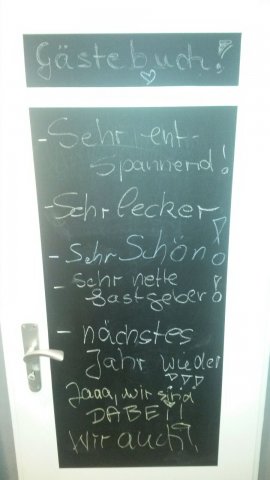 Gästebuch!
- Sehr ent-
spannend!
- Sehr lecker!
- Sehr Schön!
- sehr nette
Gastgeber!
- nächstes
Jahr wieder
Jaaa, wir sind
DABEI!
Wir auch!